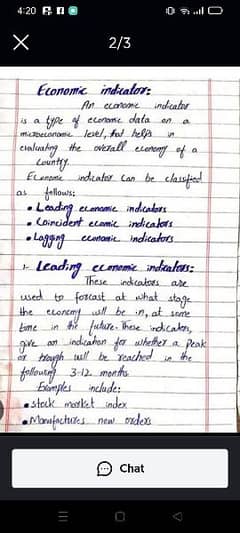 4:20
2/3
Economic indicator:
An economic indicator
is a type of economic data on a
microeconomic level, that helps in
evaluating the overall economy of a
country.
Economic indicator can be classified
as follows:
• Leading economic indicators
• Coincident ecomic indicators
• Lagging economic indicators
1- Leading economic indicators:
These indicators are
used to forcast at what stage
the economy will be in, at some
time in the future. These indicators,
give an indication for whether a peak
or trough will be reached in the
following 3-12 months
Examples include:
• stock market index
• Manufactures new orders
Chat